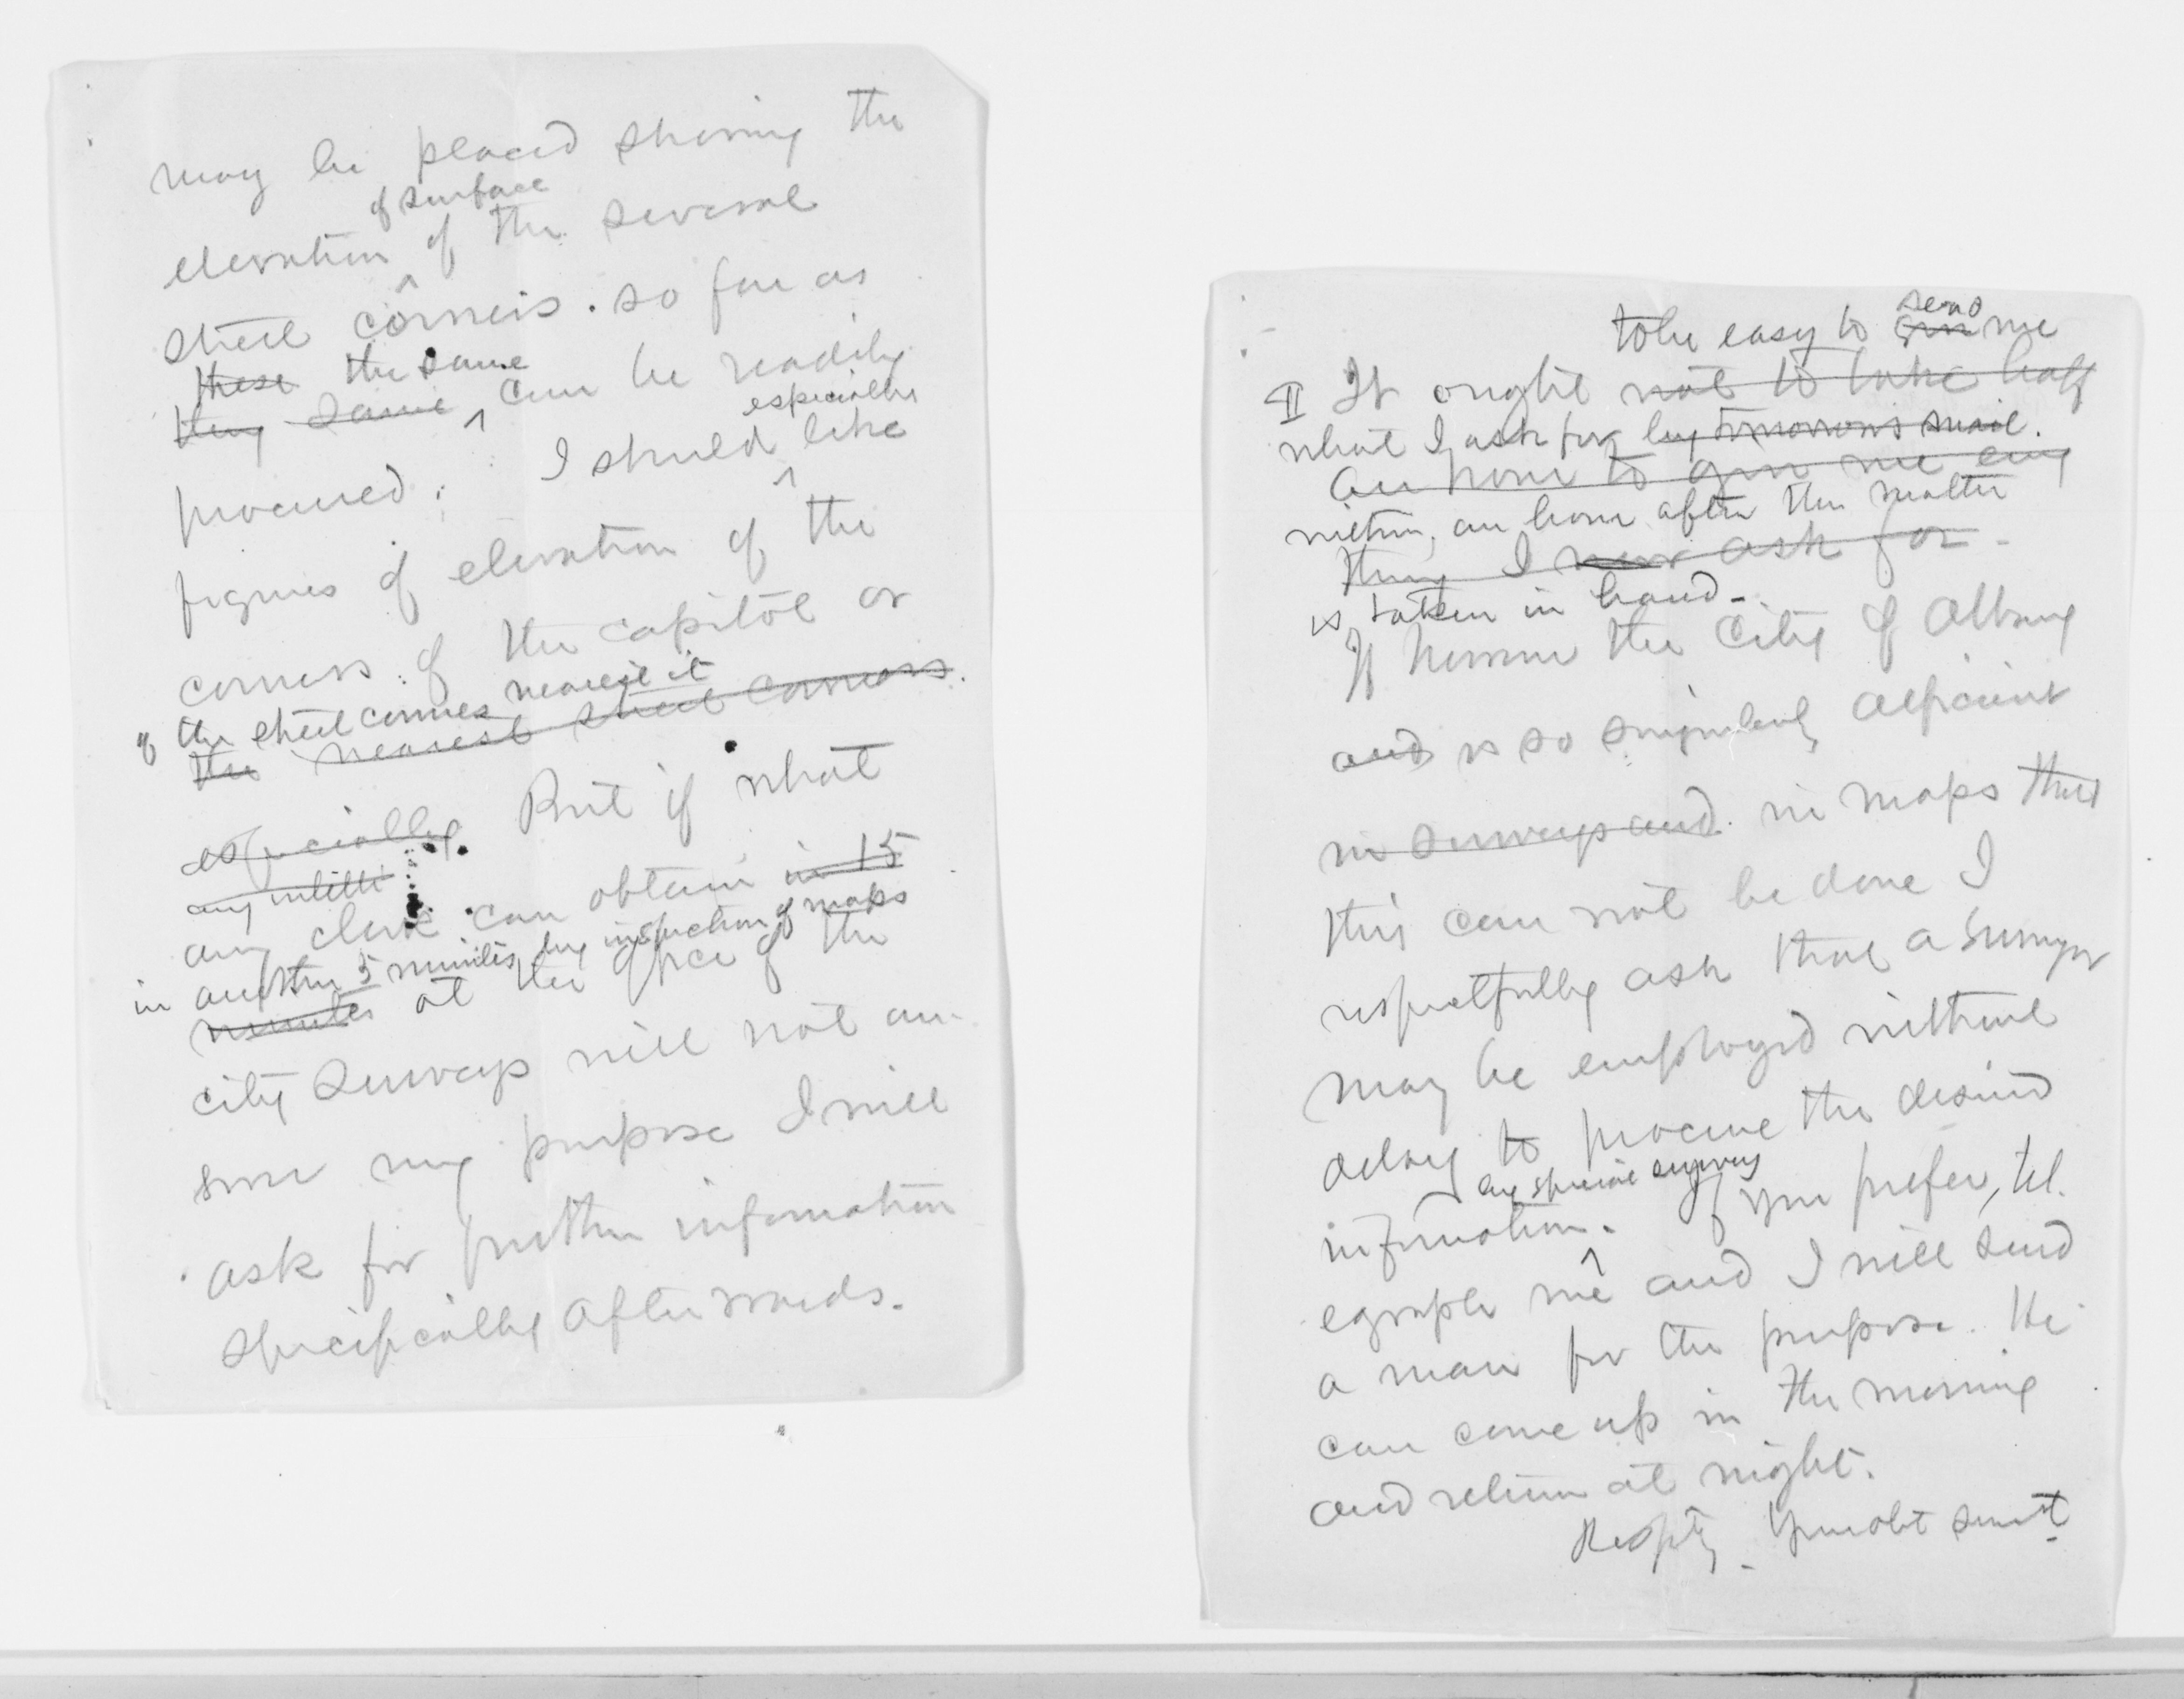 may be placed showing the
of surface
elevation of the several
street corners. so far as
these the same
they same can be readily
especially
procured; I should like
figures of elevation of the
corners of the capitol or
of the street corners nearest it
the nearest street corners.
especially. But if what
any intelli
any clerk can obtain in 15
in another 5 minutes by inspection of maps
minutes at the office of the
city surveys will not an-
swer my purpose I will
ask for further information
specifically afterwards.
to be easy to send
give me
II It ought not to take half
what I ask for by tomorrow's mail.
an hour to give me every
within, an hour after the matter
thing I now ask for-
is taken in hand-
If however the City of Albany
and is so singularly deficient
in surveys and in maps that
this can not be done I
respectfully ask that a surveyor
may be employed without
delay to procure the desired
by special survey
information. If you prefer, tel.
egraph me and I will send
a man for the purpose. He
can come up in the morning
and return at night.
Respty- Your obt servt